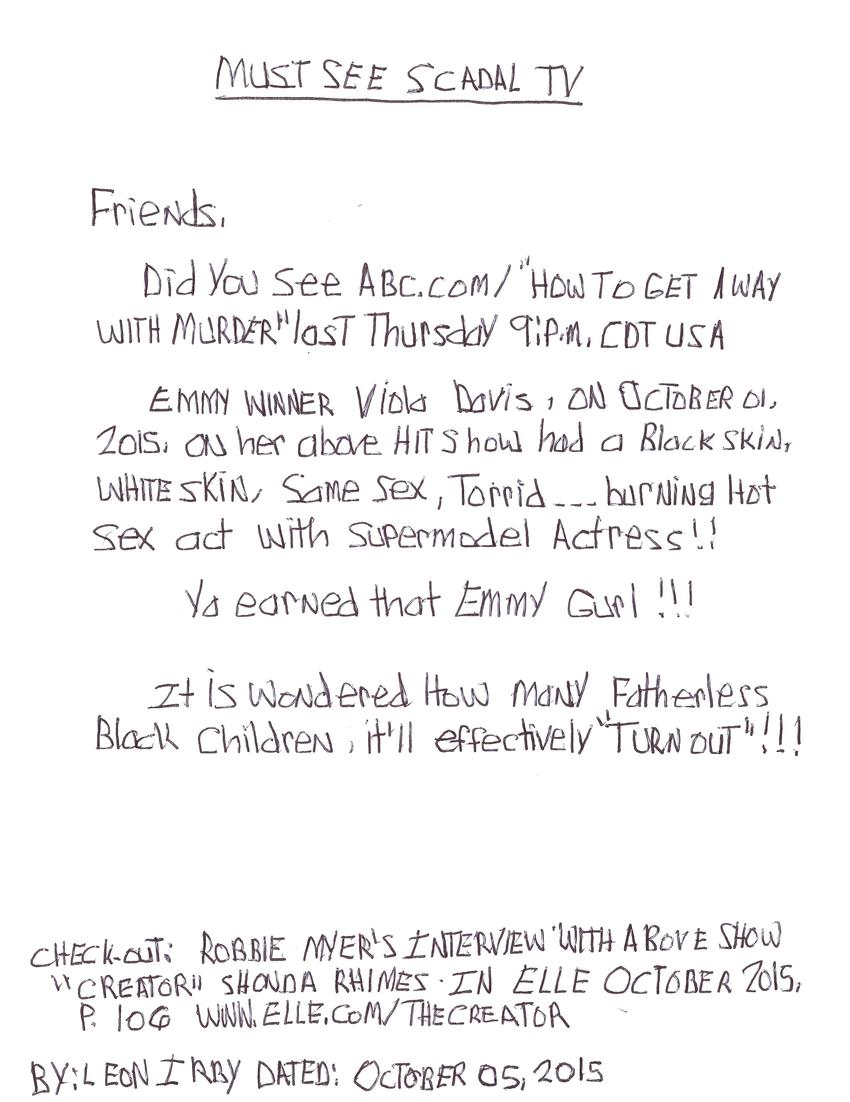 MUST SEE SCADAL TV
Friends,
Did You See ABC.com/"HOW TO GET AWAY
WITH MURDER" last Thursday 9:P.M. CDT USA
EMMY WINNER Viola Davis, ON OCTOBER 01,
2015, on her above HIT Show had a Black SKIN,
WHITE SKIN, Same Sex, Torrid --- burning Hot
Sex act with Supermodel Actress!!
Ya earned that EMMY Gurl!!!
It is wondered How many Fatherless
Black Children, it'll effectively "TURN OUT"!!!
CHECK-OUT: ROBBIE MYER'S INTERVIEW WITH ABOVE SHOW
"CREATOR" SHONDA RHIMES. IN ELLE OCTOBER 2015,
P. 106 WWW.ELLE.COM/THECREATOR
BY: LEON IRBY DATED: OCTOBER 05, 2015